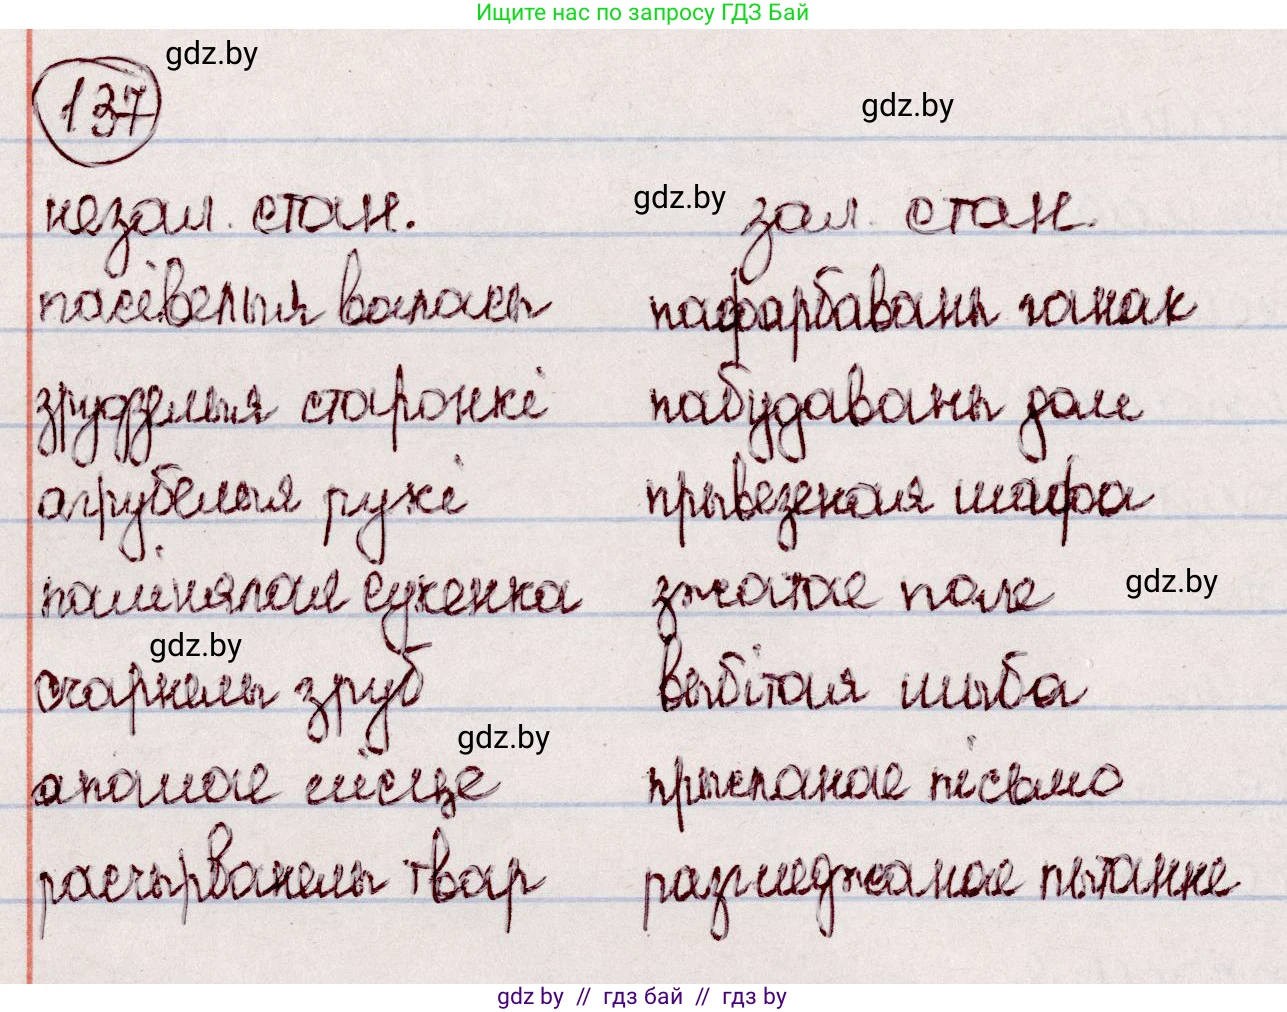 Ищите нас по запросу ГДЗ Бай
gdz.by
137
gdz.by
незал. стан. gdz.by зал. стан.
пасівелыя валасы пафарбаваны ганак
зрудзелыя старонкі пабудаваны дом
агрубелыя рукі прывезеная шафа
палінялая сукенка зжатае поле gdz.by
gdz.by
счарнелы зруб выбітая шыба
gdz.by
апалае лісце прысланае пісьмо
расчырванелы твар разгледжанае пытанне
gdz by // гдз бай // гдз by